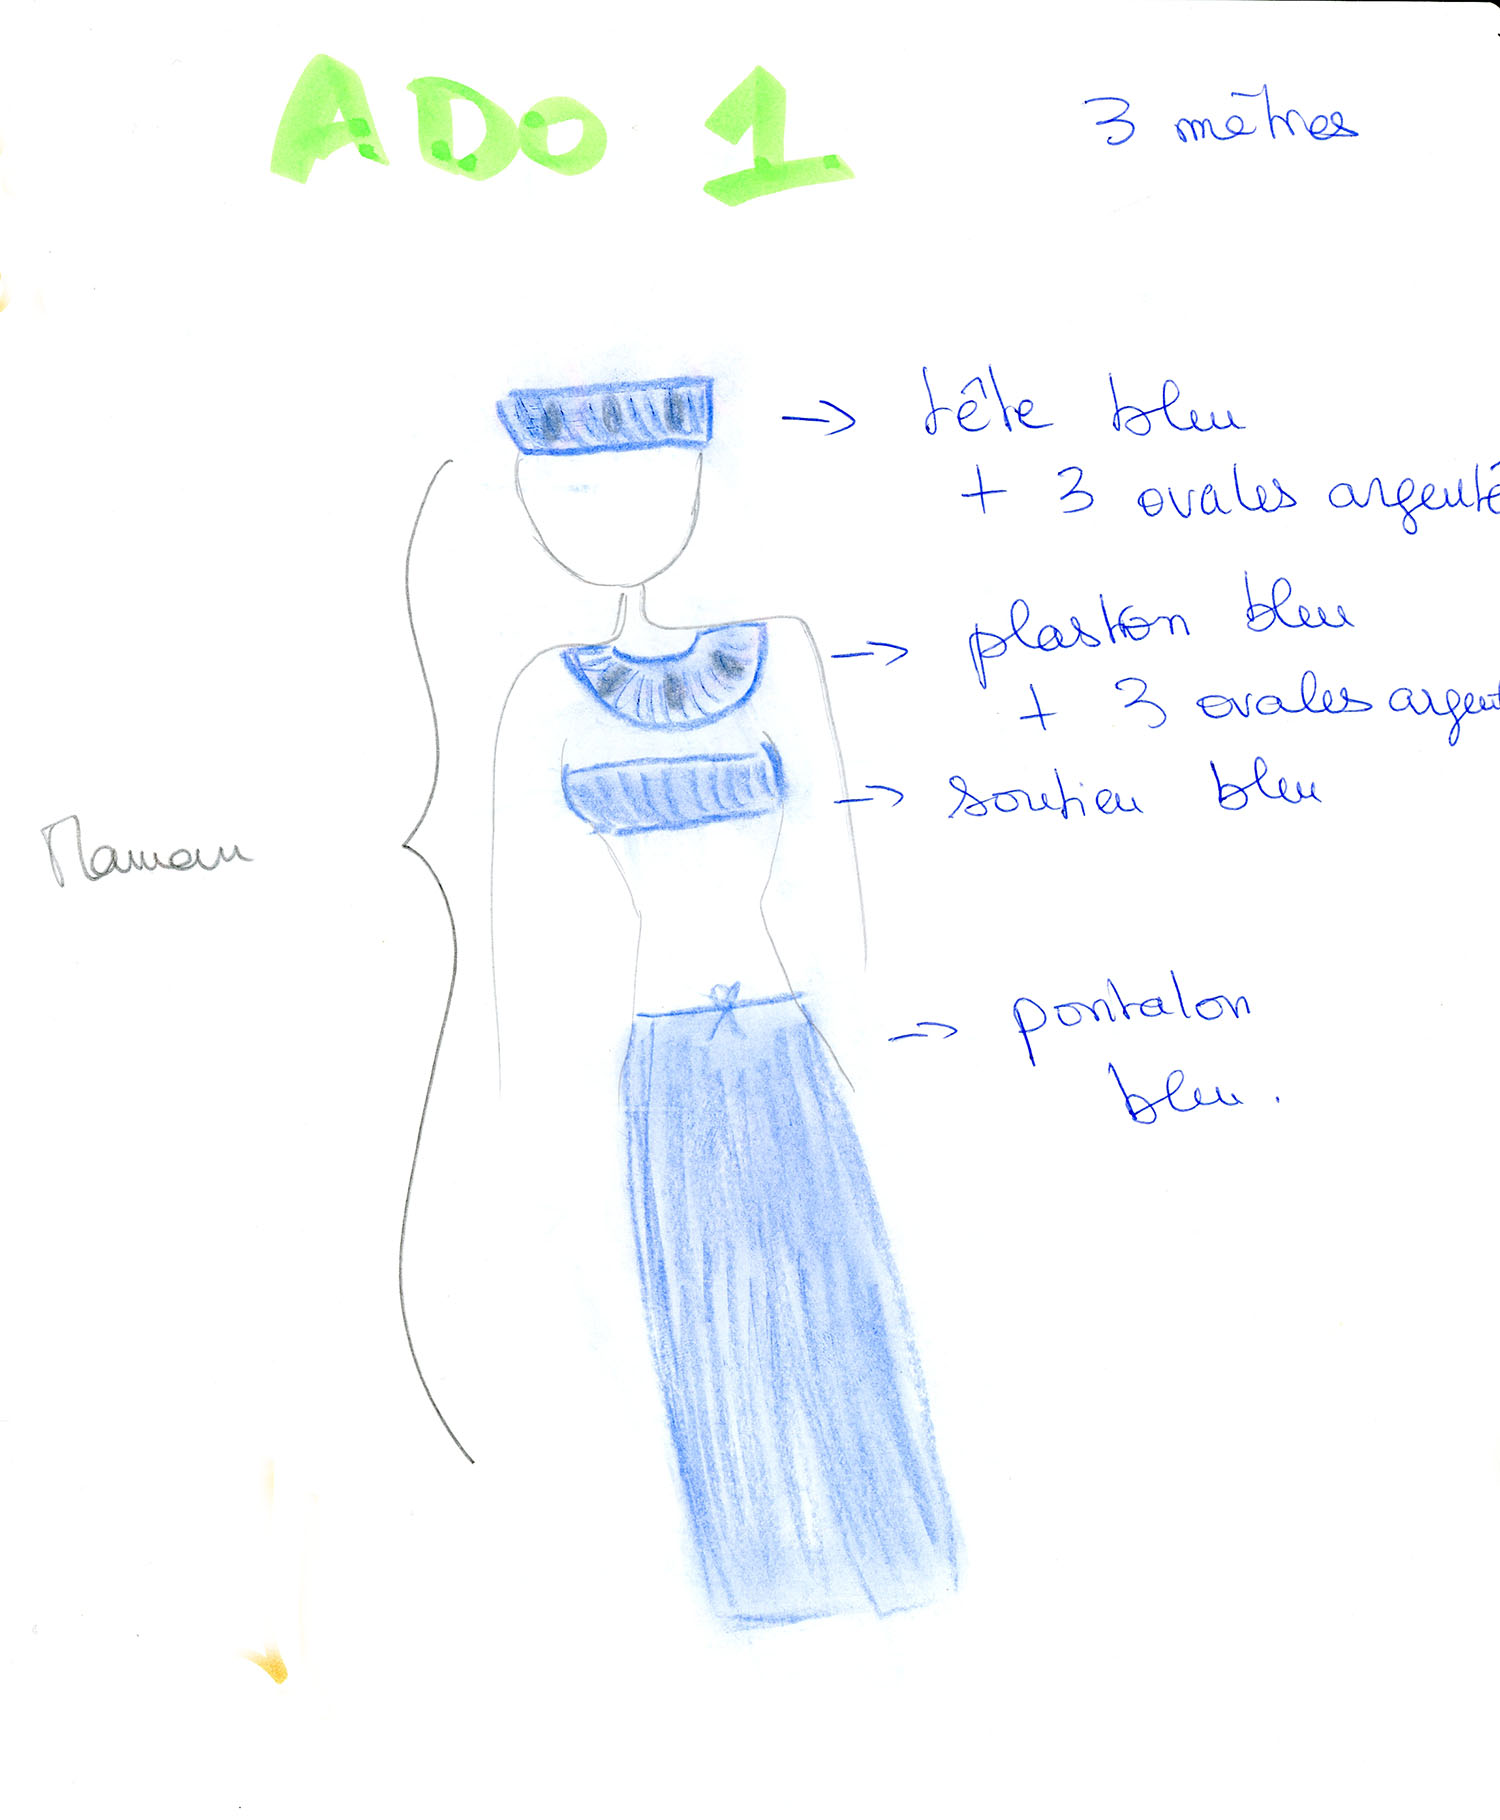 ADO 1
3 mètres
→ tête bleu
+ 3 ovales argenté
→ plastron bleu
+ 3 ovales argent
→ soutien bleu
Maman
→ pantalon
bleu.